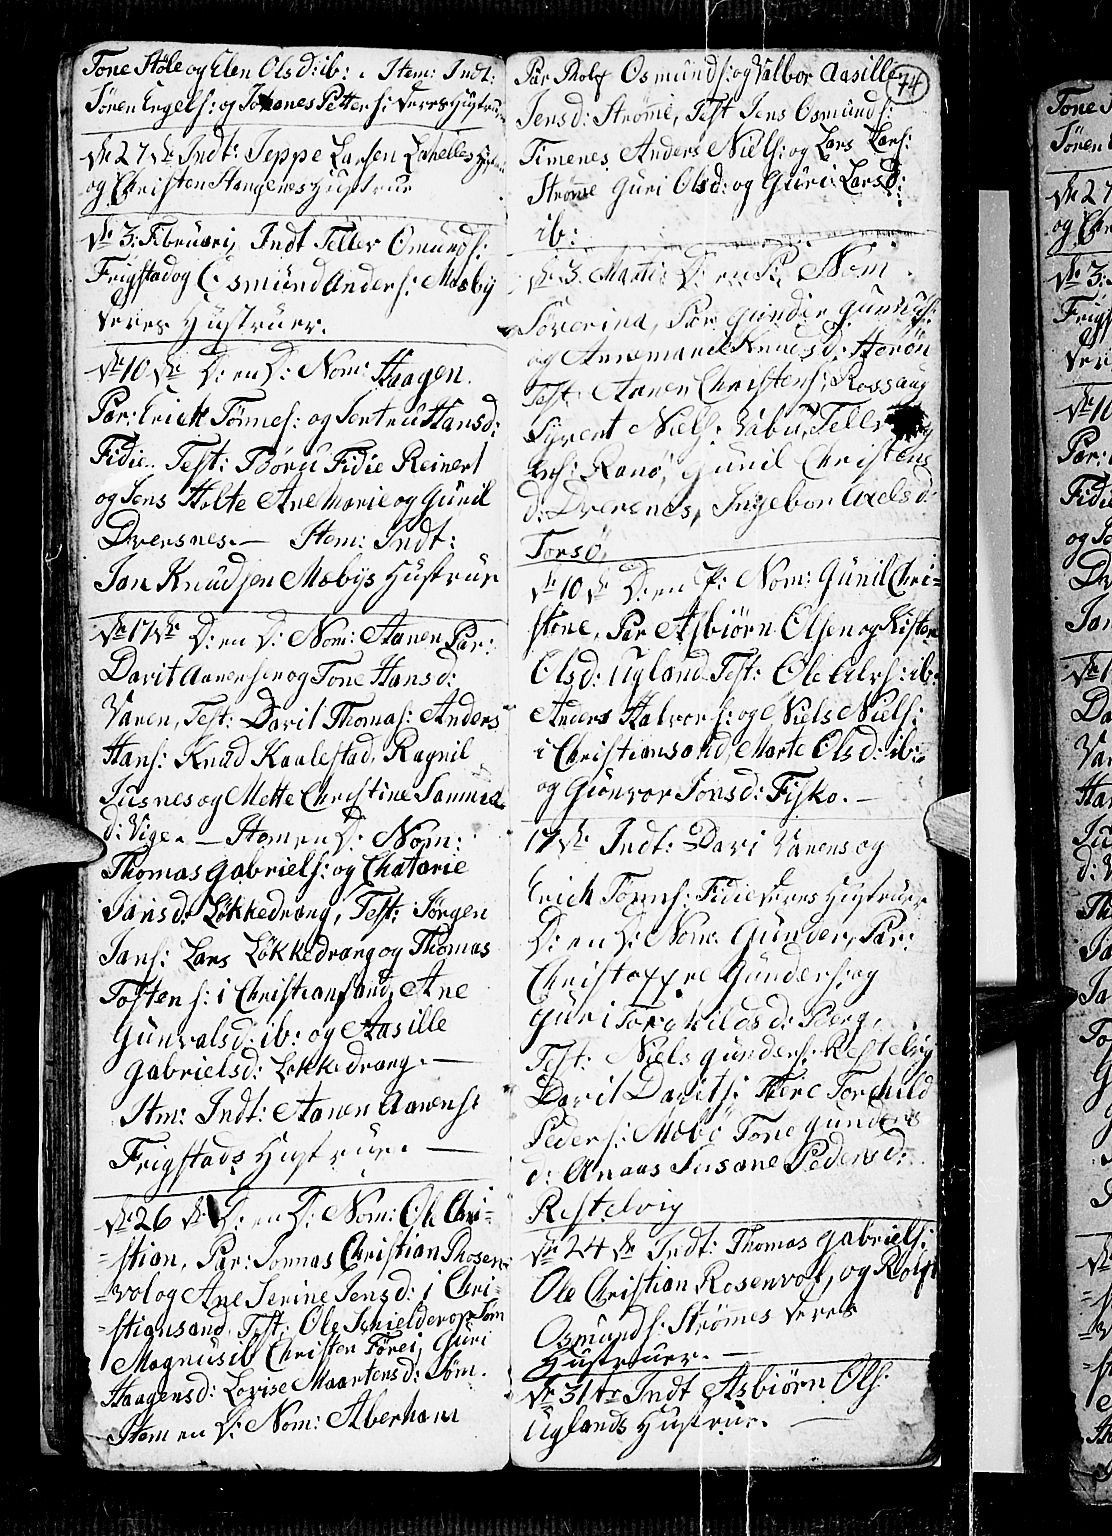 Tone Støle og Elen Olsd: ib: . Item: Indt:
Sören Engels: og Johanes Petters: deres Hustruer
d: 27 de Indt: Jeppe Larsen
og Christen Stangenes Hustruer
d: 3: Februari, Indt Tellev Omunds:
Frigstad og Osmund Anders: Mosby
deres Hustruer.
d: 10 de D: en D: Nom: Haagen.
Par: Erich Tönnes: og Sentru Hansd:
Fidie. Test: Fidie Reinert
og Jens Holte Ane Marie og Gunil
Dversnes. — Item: Indt:
Jan Knudsen Mæbys Hustrue
d: 17 de D: en D: Nom: Aanen Par:
Davit Aanensen og Tone Hansd:
Varen, Test: Davit Thomas: Anders
Hans: Knud Kaalestad, Ragnil
Jusnes og Mette Christine
d: Vige. — Item en D: Nom:
Thomas Gabriels: og Chatarie
Jansd: Løkkedrang, Test: Jørgen
Jans: Lars Løkkedrang og Thomas
Tostens: i Christiansand, Ane
Gunvalsd: ib: og Aasille
Gabrielsd: Løkkedrang. —
Itm: Indt: Aanen Aanens:
Frigstads Hustrue. —
d: 26 de D: en D: Nom: Ole Chri=
=stian, Par: Jonnas Christian Rosen
=vol og Ane Serine Jensd: i Chri=
=stiansand, Test: Ole Schielderop Tom
Magnus ib: Christen Förei, Guri
Haagensd: Lovise Maartensd: Tom.
Item en D: Nom: Aberham
Par Rolf Osmunds: og Valbor Aasille 74
Jensd: Strømme, Test Jens Osmunds:
Timenes Anders Niels: og Lars Lars:
Strøme Guri Olsd: og Guri Larsd:
ib:
d: 3 Marti D: en P: Nom
Soverina, Par Gunder Gunders:
og Annemarie Knudsd: Herøn
Test: Aanen Christens: Rossaug
Syvert Niels: Tellev
Ens: Ranö, Gunil Christens
d: Dverenes, Ingebor Axelsd:
Torsö,
d: 10 de D: en P: Nom: Gunil Chri=
stene, Par Asbiörn Olsen og Kisten
Olsd: Ugland Test: Ole Olrs: ib:
Anders Halvors: og Niels Niels:
i Christiansand, Marte Olsd: ib:
og Giönvor Jonsd: Fisko. —
17 de Indt: Davi Varens og
Erich Tönns: Fidie deres Hustruer
D: en D: Nom: Gunder, Par:
Christoffre Gunders: og
Guri Torkildsd: Berg,
Test: Niels Gunders: Kestelvig
Davit Davits: Torchild
Peders: Mobö Tone Gunders
d: Anaas Susane Pedersd:
Restelvig
d: 24 de Indt: Thomas Gabriels:
Ole Christian Rosenvol, og Rolf
Osmunds: Strømes deres
Hustruer. —
d: 31 te Indt Asbiörn Ols:
Uglands Hustrue. —